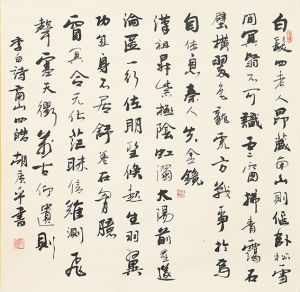 白髮四老人昂藏南山側偃臥松雪
間冥翳不可識雲窗拂青靄石
壁橫翠色龍虎方戰爭於焉
自休息秦人失金鏡
漢祖昇紫極陰虹濁太陽前星遂
淪匿一行佐明聖倏起生羽翼
功成身不居舒卷在胸臆
窅冥合元化茫昧信難測飛
聲塞天衢萬古仰遺則
李白詩商山四皓胡廣平書